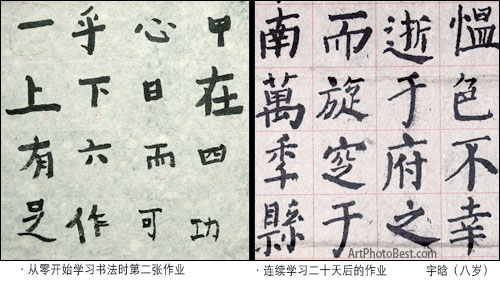 甲在四功
心日而可
乎下六作
一上有足
愠色不幸
逝于府之
而旋窆于
南萬秊縣
ArtPhotoBest.com
· 从零开始学习书法时第二张作业
· 连续学习二十天后的作业 宇晗（八岁）